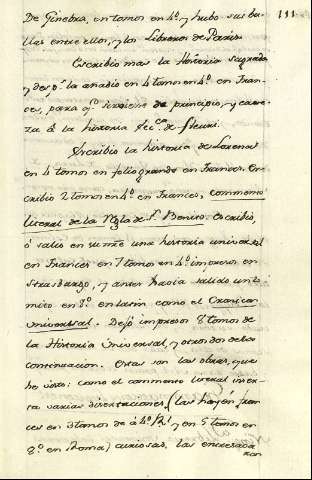 111
De Ginebra, en tomos en 4º. y hubo sus ba-
llas entre ellos, y los Libreros de Paris.
Escribio mas la Historia sagrada
y desp.s la añadio en 4 tomos en 4º. en Fran-
ces, para q.e serviese de principio, y cave-
za á la historia Ecc.ca de Fleuri.
Escribio la historia de Lorena
en 4 tomos en folio grande en Frances. Es-
cribio 2 tomos en 4º. en Frances, commento
literal de la Regla de S. Benito. Escribio,
ó salio en su nõe una historia universal
en Frances en 7 tomos en 4º. impresos en
Strasburgo, y antes havia salido un to-
mito en 8º. en latin como el Cronicon
universal. Dejó impresos 8 tomos de
la Historia Universal, y otros dos de la
continuacion. Estas son las obras, que
he visto: como el commento literal inser-
ta varias disertaciones, (las hay en fran-
ces en 3 tomos de á 4º. y en 5 tomos en
8º. en Roma) curiosas, las entresaca-
ron